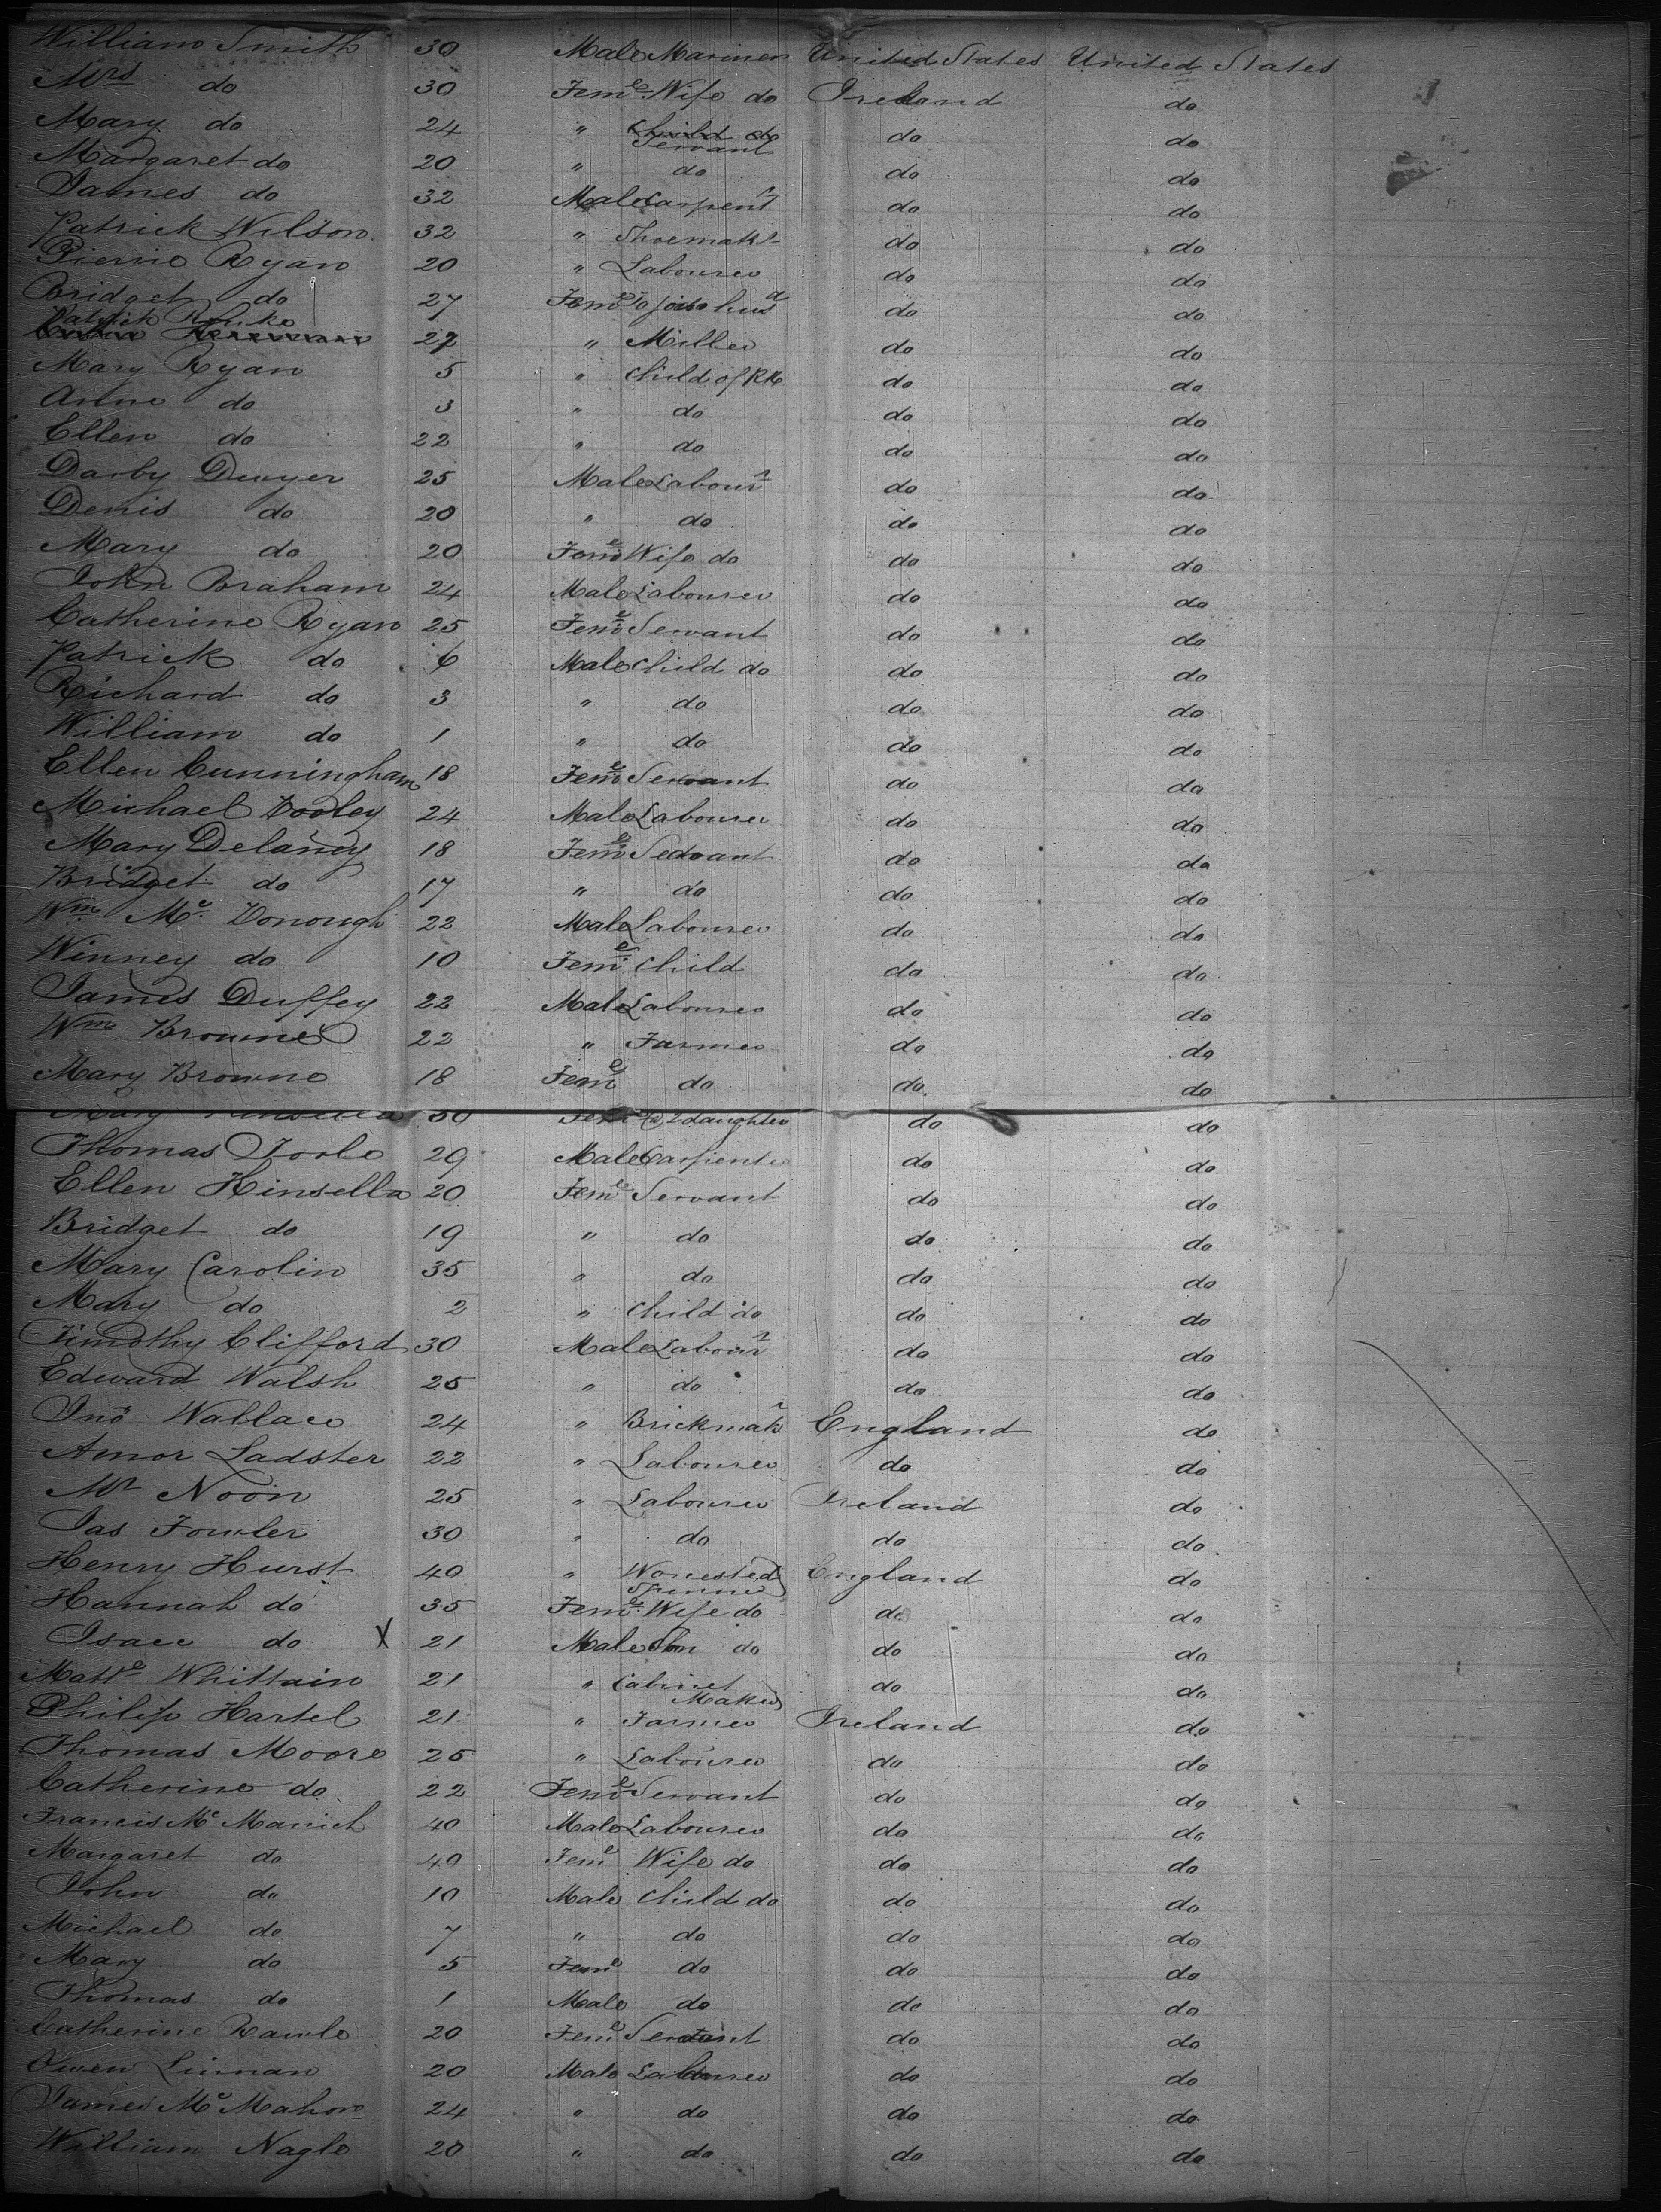 William Smith 30 Male Mariner United States United States
Mrs do 30 Feme Wife do Ireland do
Mary do 24 " Child do do do
Servant
Margaret do 20 " do do do
James do 32 Male Carpentr do do
Patrick Wilson 32 " Shoemakr do do
Pierrie Ryan 20 " Labourer do do
Bridget do 27 Feme To join husd do do
Patrick
27 " Miller do do
Mary Ryan 5 " Child of do do
Anne do 3 " do do do
Ellen do 22 " do do do
Darby Dwyer 25 Male Labourr do do
Denis do 20 " do do do
Mary do 20 Feme Wife do do do
John Braham 24 Male Labourer do do
Catherine Ryan 25 Feme Servant do do
Patrick do 6 Male Child do do do
Richard do 3 " do do do
William do 1 " do do do
Ellen Cunningham 18 Feme Servant do do
Michael Dooley 24 Male Labourer do do
Mary Delaney 18 Feme Servant do do
Bridget do 17 " do do do
Wm Mc Donough 22 Male Labourer do do
Winney do 10 Feme Child do do
James Duffey 22 Male Labourer do do
Wm Browne 22 " Farmer do do
Mary Browne 18 Feme do do do
Mary Kinsella 50 Feme & 2 daughters do do
Thomas Toole 29 Male Carpenter do do
Ellen Hinsella 20 Feme Servant do do
Bridget do 19 " do do do
Mary Carolin 35 " do do do
Mary do 2 " Child do do do
Timothy Clifford 30 Male Labourr do do
Edward Walsh 25 " do do do
Jno Wallace 24 " Brickmakr England do
Amor Ladster 22 " Labourer do do
Mr Noon 25 " Labourer Ireland do
Jas Fowler 30 " do do do
Henry Hurst 40 " Worested England do
Spinner
Hannah do 35 Feme Wife do do do
Isace do X 21 Male Son do do do
Matte Whittain 21 " Cabinet do do
Maker
Philip Hartel 21 " Farmer Ireland do
Thomas Moore 25 " Labourer do do
Catherine do 22 Feme Servant do do
Francis Mc Manich 40 Male Labourer do do
Margaret do 40 Feme Wife do do do
John do 10 Male Child do do do
Michael do 7 " do do do
Mary do 5 Feme do do do
Thomas do 1 Male do do do
Catherine Rawle 20 Feme Servant do do
Owen Linnan 20 Male Labourer do do
James Mc Mahon 24 " do do do
William Nagle 20 " do do do